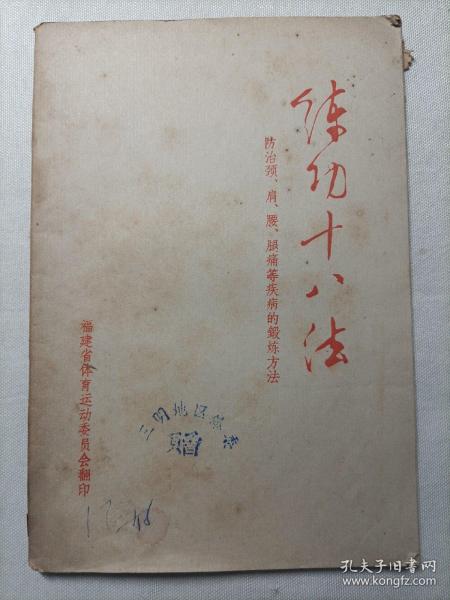 练功十八法
防治颈、肩、腰、腿痛等疾病的锻炼方法
福建省体育运动委员会翻印
三明地区
孔夫子旧书网
www.kongfz.com